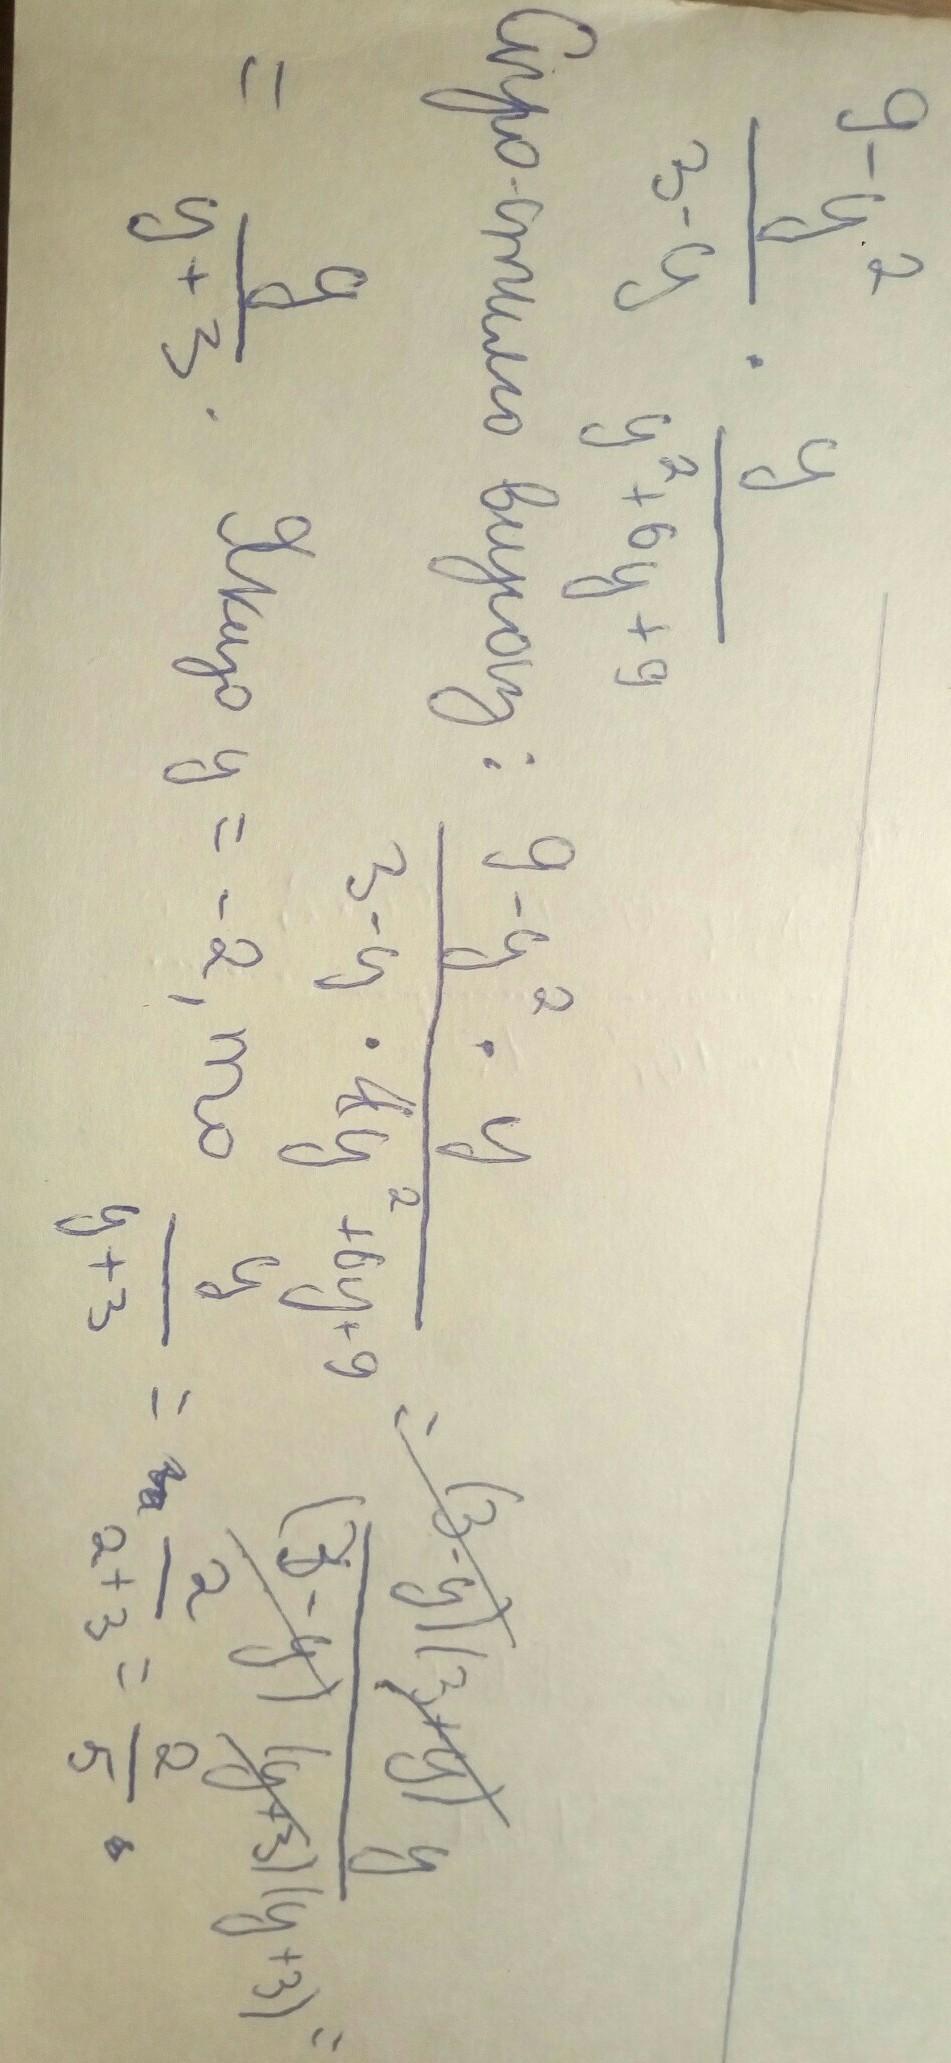 9-y²/3-y · y/y²+6y+9
Спро-стимо вираз: 9-y² · y/3-y · y²+6y+9 = (3-y)(3+y)y/(3-y)(y+3)(y+3) =
= y/y+3. Якщо y = -2, то y/y+3 = 2/2+3 = 2/5.